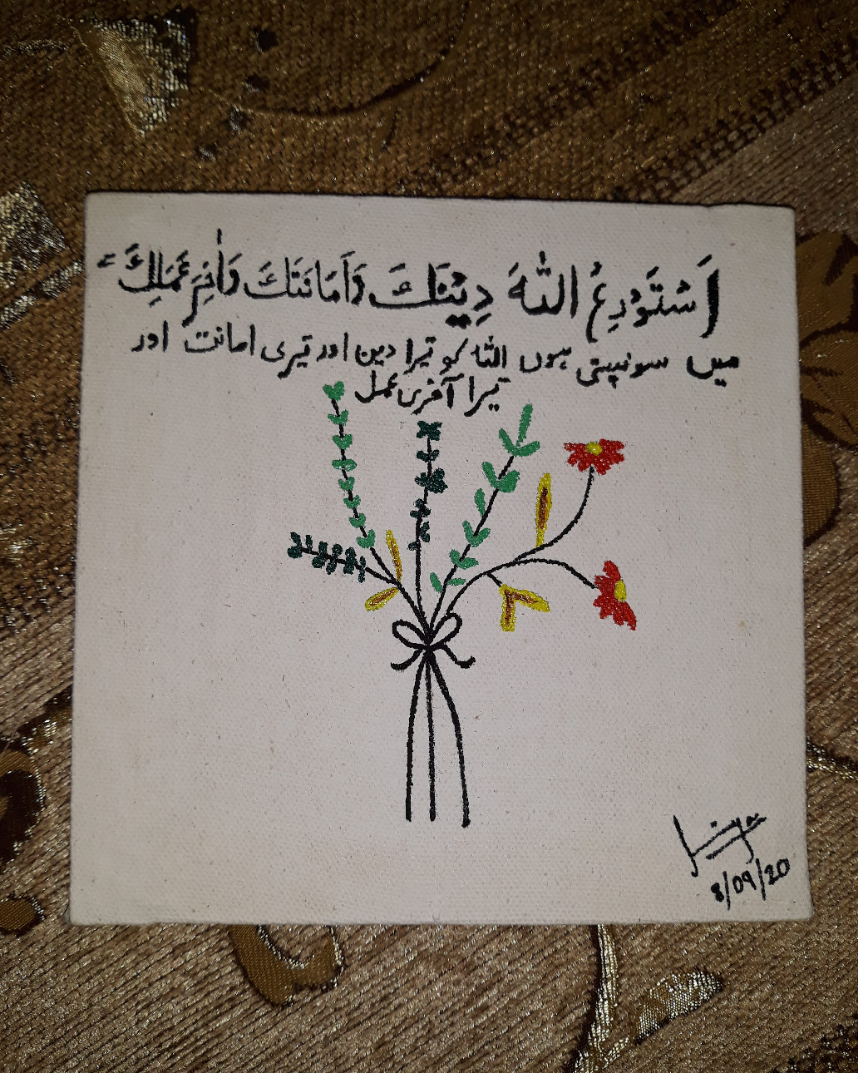 اَسْتَوْدِعُ اللّٰهَ دِیْنَكَ وَاَمَانَتَكَ وَاٰخِرَ عَمَلِكَ
میں سونپتی ہوں اللہ کو تیرا دین اور تیری امانت اور
تیرا آخری عمل
8/09/20